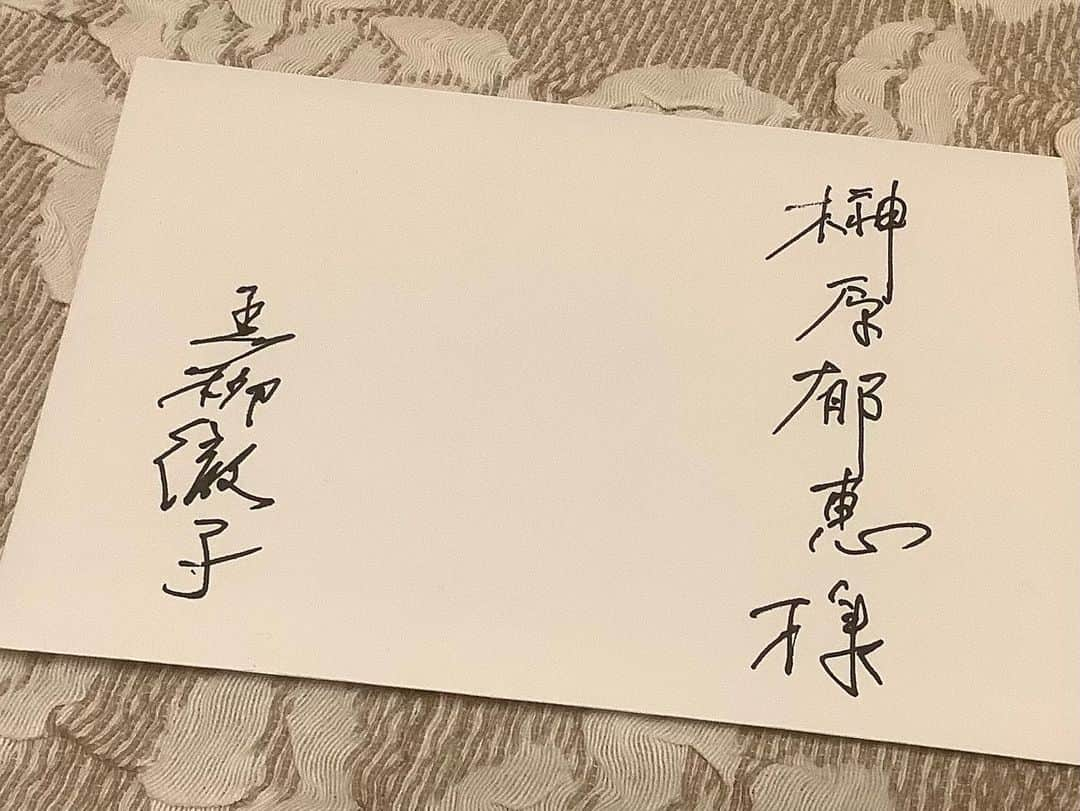 榊原郁恵様
黒柳徹子